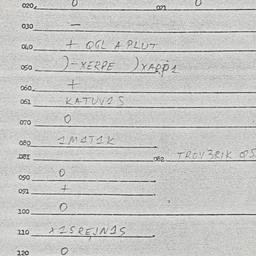 020. 0 021 0
030 –
040 + QGL A PLUT
050 )-XERPE )XARP1
060 +
061 KATUV2S
070 0
080 1MAT1K
081 082 TROV3RIK
090 0
091 +
100 0
110 X1SREJN1S
120 0